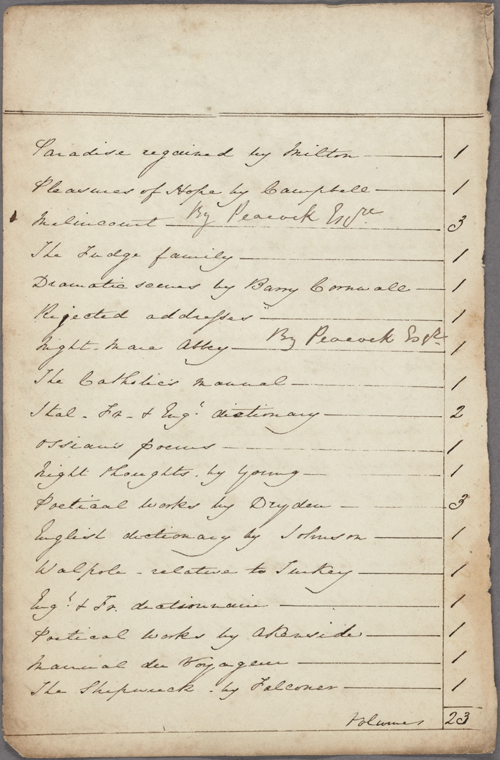 Paradise regained by Milton 1
Pleasures of Hope by Campbell 1
Melincourt By Peacock Esqre 3
The Fudge family 1
Dramatic scenes by Barry Cornwall 1
Rejected addresses 1
Night-Mare Abbey By Peacock Esqre 1
The Catholic's manual 1
Ital. Fr. & Engl. dictionary 2
Ossian's poems 1
Night thoughts by Young 1
Poetical works by Dryden 3
English dictionary by Johnson 1
Walpole - relative to Turkey 1
Engl. & Fr. dictionnaire 1
Poetical works by Akenside 1
Manual du Voyageur 1
The Shipwreck by Falconer 1
Volumes 23